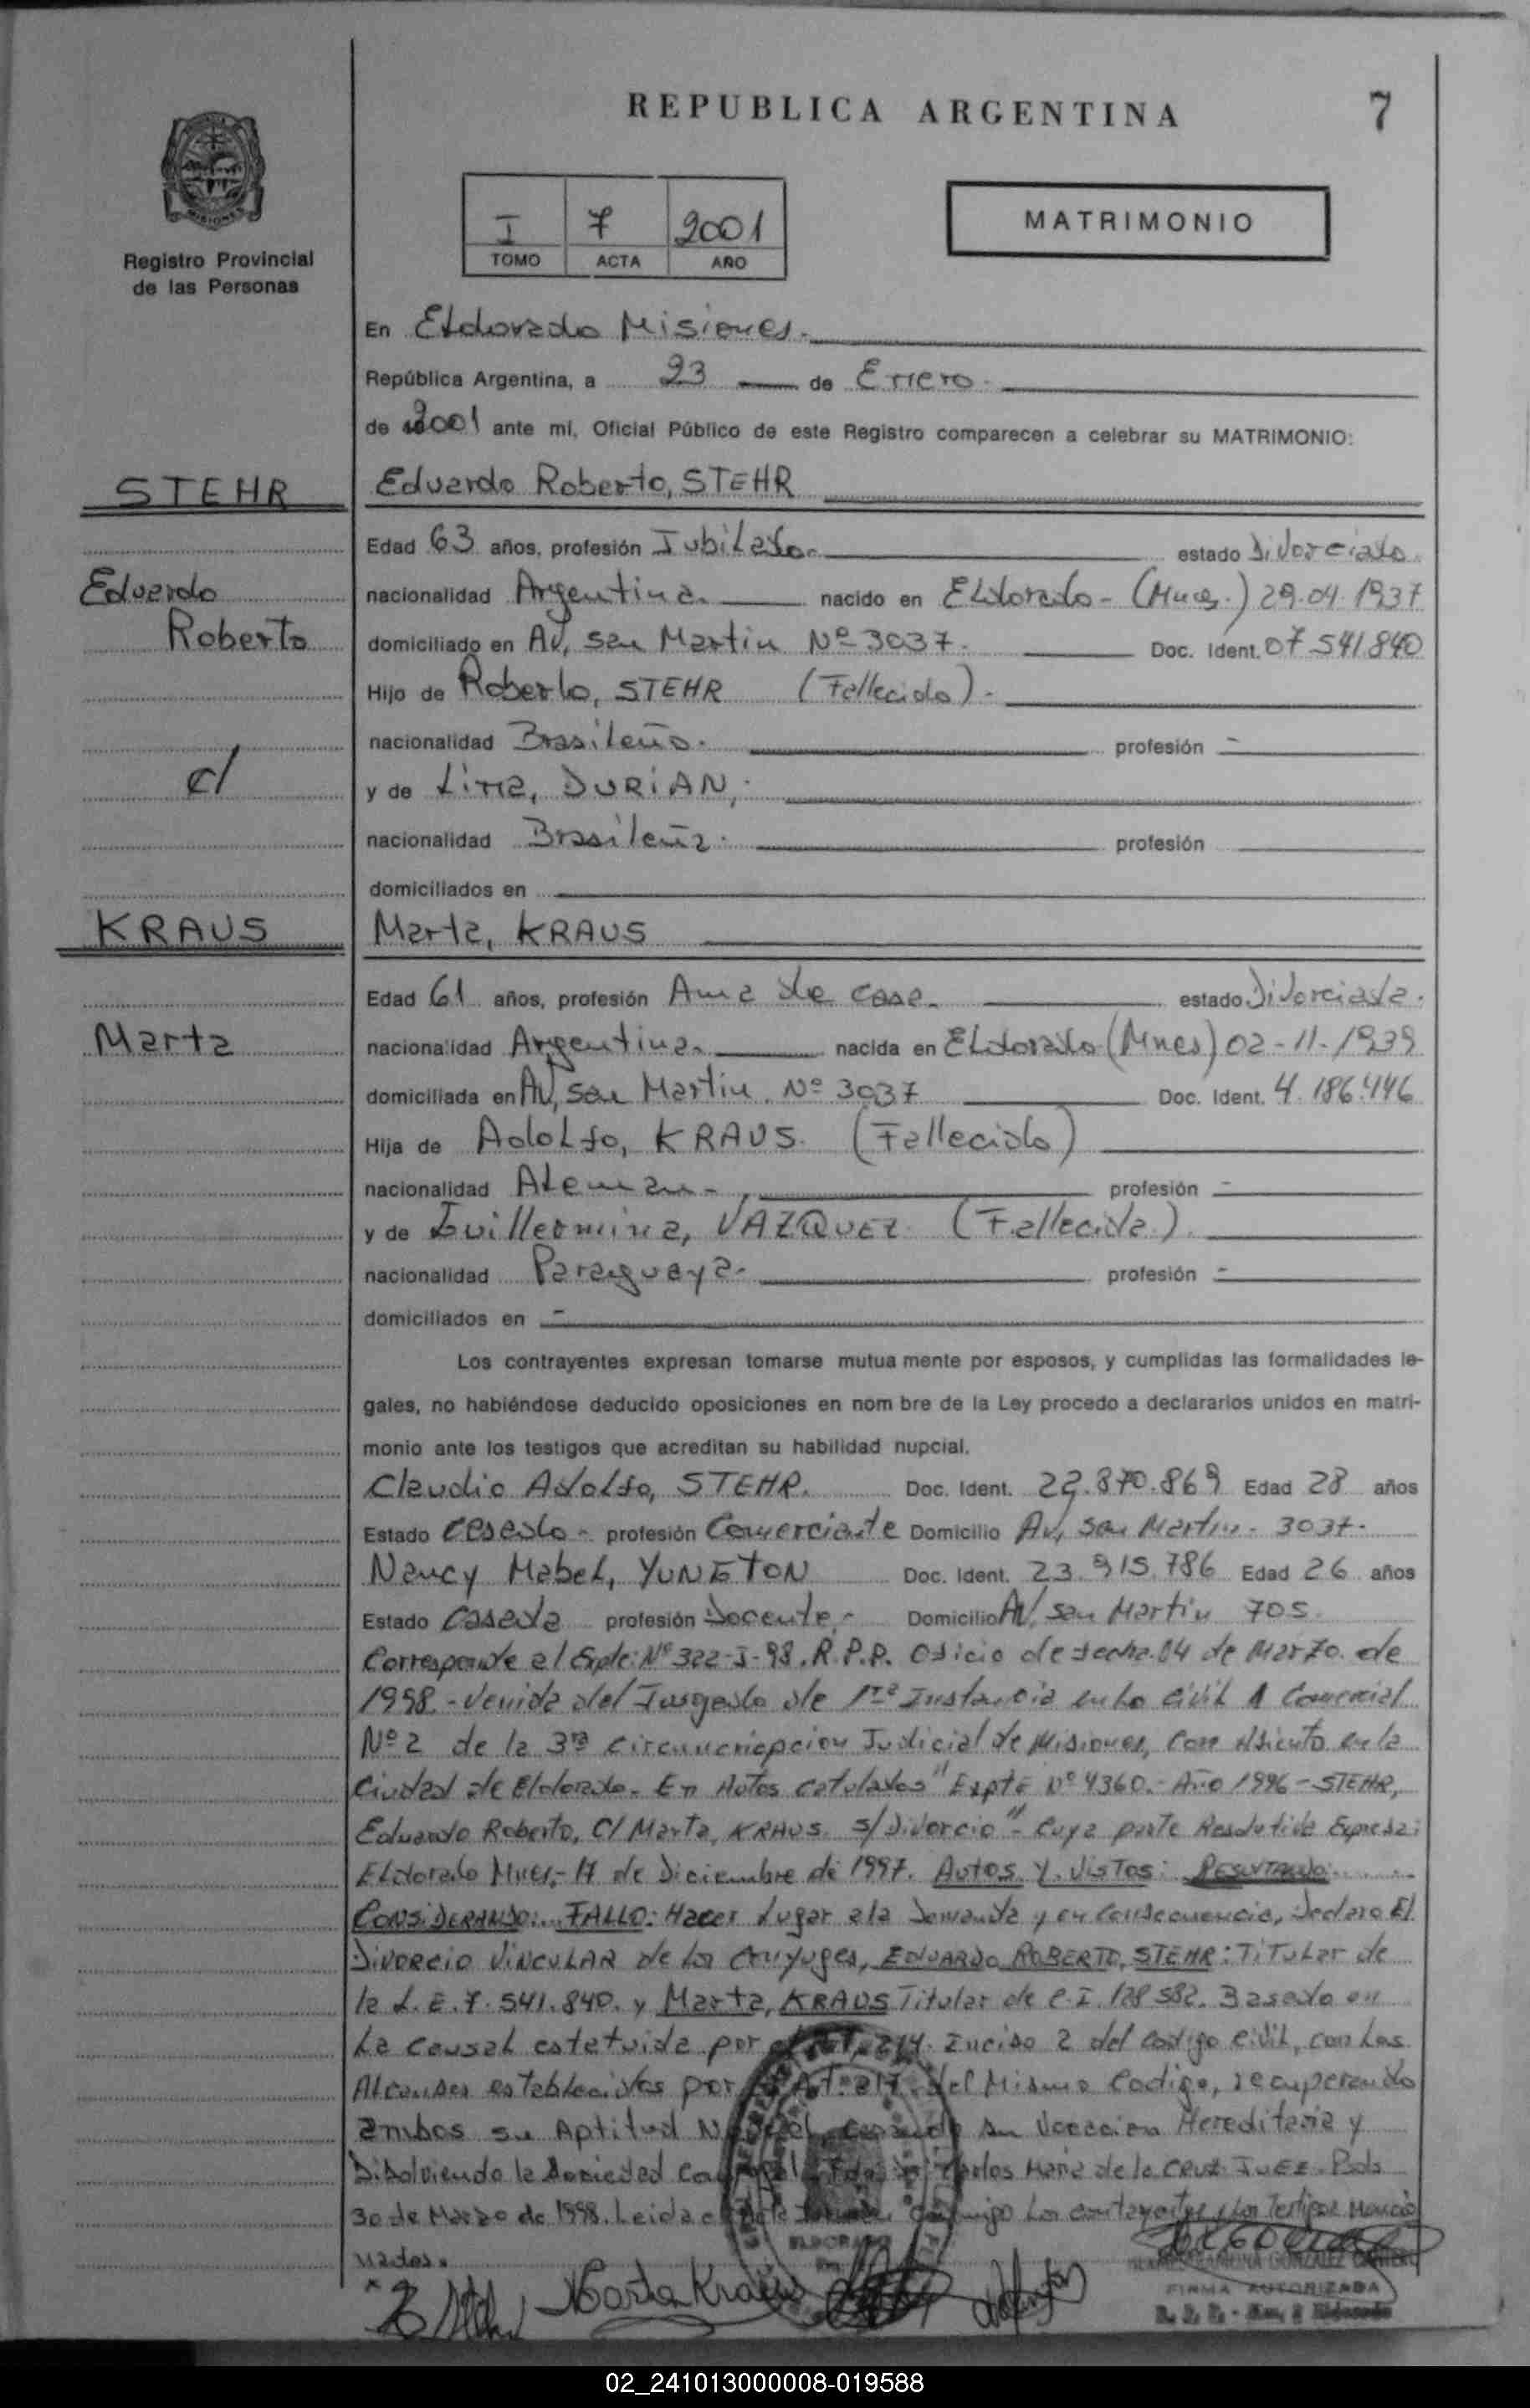 REPUBLICA ARGENTINA
7
MISIONES
Registro Provincial
de las Personas
I 7 2001
TOMO ACTA AÑO
MATRIMONIO
En Eldorado Misiones.
República Argentina, a 23 de Enero.
de 2001 ante mí, Oficial Público de este Registro comparecen a celebrar su MATRIMONIO:
STEHR
Eduardo Roberto, STEHR
Edad 63 años, profesión Jubilado. estado Divorciado.
Eduardo
nacionalidad Argentina. nacido en Eldorado - (Mnes.) 29.04.1937
Roberto
domiciliado en Av, san Martin Nº 3037. Doc. Ident. 07.541.840
Hijo de Roberto, STEHR (Fallecido).-
nacionalidad Brasileño. profesión -
c/
y de Lina, DURIAN,.
nacionalidad Brasileña. profesión
domiciliados en
KRAUS
Marta, KRAUS
Edad 61 años, profesión Ama de casa. estado Divorciada.
Marta
nacionalidad Argentina. nacida en Eldorado (Mnes) 02-11-1939
domiciliada en Av, san Martin. Nº 3037 Doc. Ident. 4.186.446
Hija de Adolfo, KRAUS. (Fallecido)
nacionalidad Aleman.- profesión -
y de Guillermina, VAZQUEZ (Fallecida).
nacionalidad Paraguaya. profesión -
domiciliados en -
Los contrayentes expresan tomarse mutua mente por esposos, y cumplidas las formalidades le-
gales, no habiéndose deducido oposiciones en nom bre de la Ley procedo a declararlos unidos en matri-
monio ante los testigos que acreditan su habilidad nupcial.
Claudio Adolfo, STEHR. Doc. Ident. 22.870.869 Edad 28 años
Estado Casado - profesión Comerciante Domicilio Av, San Martin - 3037.
Nancy Mabel, YUNGTON Doc. Ident. 23.915.786 Edad 26 años
Estado Casada profesión Docente,- Domicilio Av, san Martin 705
Corresponde al Expte: Nº 322-J-98. R.P.P. Oficio de fecha 04 de Marzo. de
1998.- Venida del Jusgado de 1ra Instancia en lo civil y Comercial
Nº 2 de la 3ra Circuncripcion Judicial de Misiones, con Asiento en la
Ciudad de Eldorado. En Autos Catulados "Expte Nº 4360.- Año 1996 - STEHR,
Eduardo Roberto, C/ Marta, KRAUS s/Divorcio" - Cuya parte Resolutiva Expresa:
Eldorado Mnes,- 17 de Diciembre de 1997. Autos Y. Vistos: RESULTANDO:
CONSIDERANDO:.. FALLO: Hacer Lugar a la Demanda y en Consecuencia, Declaro El
DIVORCIO VINCULAR de los Conyuges, EDUARDO ROBERTO, STEHR: TiTuLar de
la L.E. 7.541.840. y Marta, KRAUS Titular de C.I. 128.582. Basado en
La Causal estatuida por el Art. 214. Inciso 2 del codigo civil, con Los
Alcanses establecidos por el Art: 217. del Mismo Codigo, recuperando
ambos su Aptitud Nupcial, cesando su Vocacion Hereditaria y
Disolviendo la Sociedad Conyugal. Fdo. Dr. Carlos Maria de la Cruz. JUEZ. Pdas
30 de Marzo de 1998. Leida el Acta firman conmigo Los contrayentes y Los Testigos Mencio
nados.
ELDORADO
Marta Kraus
RAMONA GONZALEZ
FIRMA AUTORIZADA
Eldorado
02_241013000008-019588